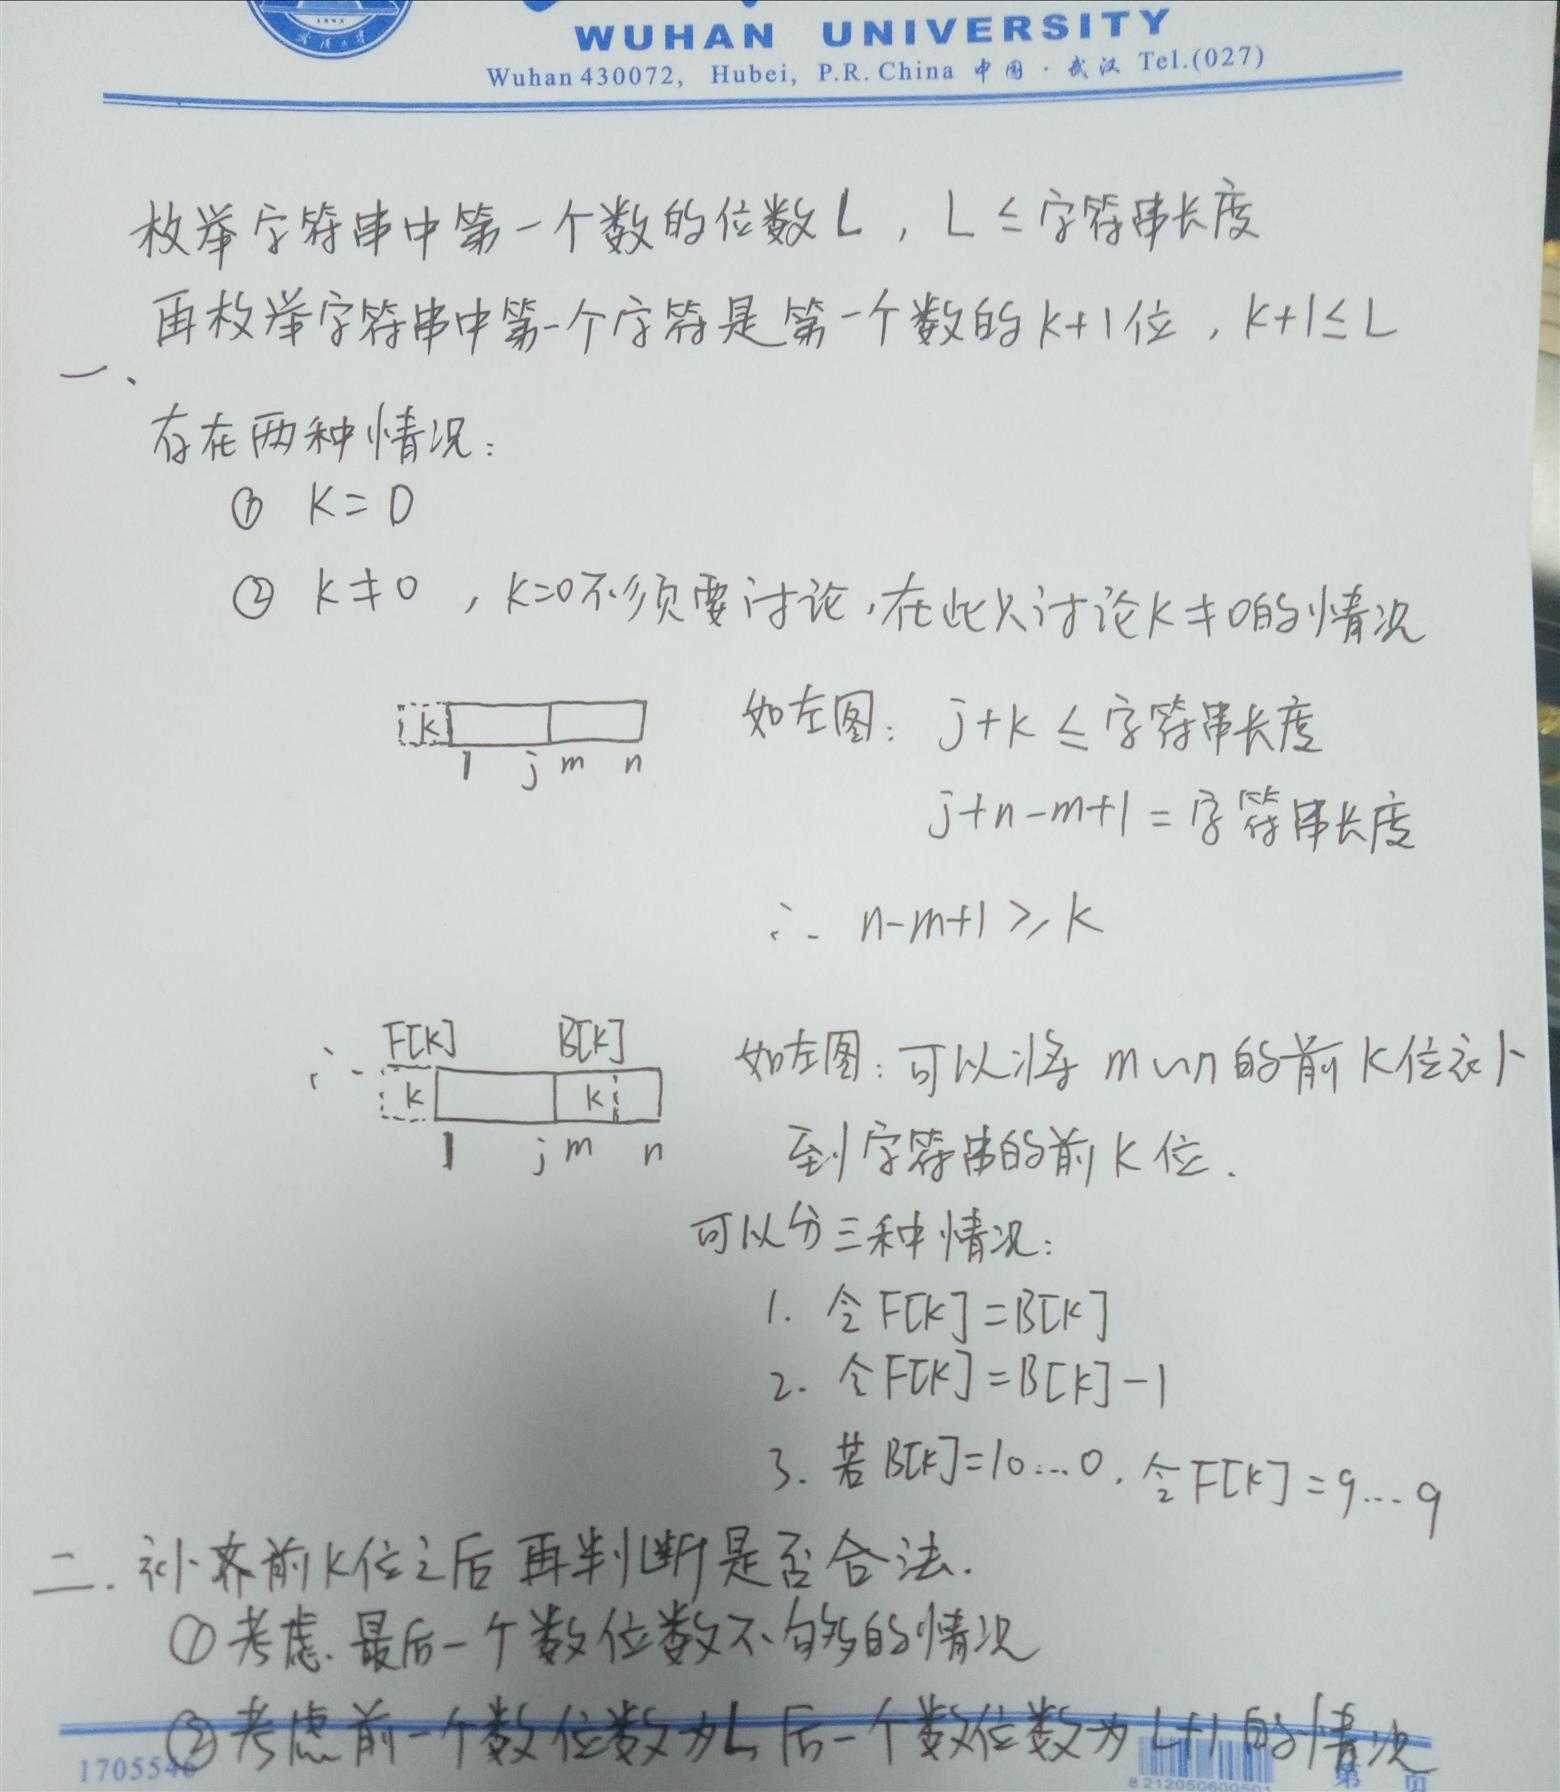 WUHAN UNIVERSITY
Wuhan 430072, Hubei, P.R. China 中国·武汉 Tel.(027)
枚举字符串中第一个数的位数L，L≤字符串长度
再枚举字符串中第一个字符是第一个数的k+1位，k+1≤L
一、
存在两种情况：
① k=0
② k≠0，k=0不须要讨论，在此只讨论k≠0的情况
k
1 j m n
如左图：j+k≤字符串长度
j+n-m+1=字符串长度
∴ n-m+1≥k
∴
F[k] B[k]
k k
1 j m n
如左图：可以将m~n的前k位补
到字符串的前k位.
可以分三种情况：
1. 令F[k]=B[k]
2. 令F[k]=B[k]-1
3. 若B[k]=10...0，令F[k]=9...9
二. 补齐前k位之后再判断是否合法.
①考虑最后一个数位数不够的情况
②考虑前一个数位数为L后一个数位数为L+1的情况
170554
第 页